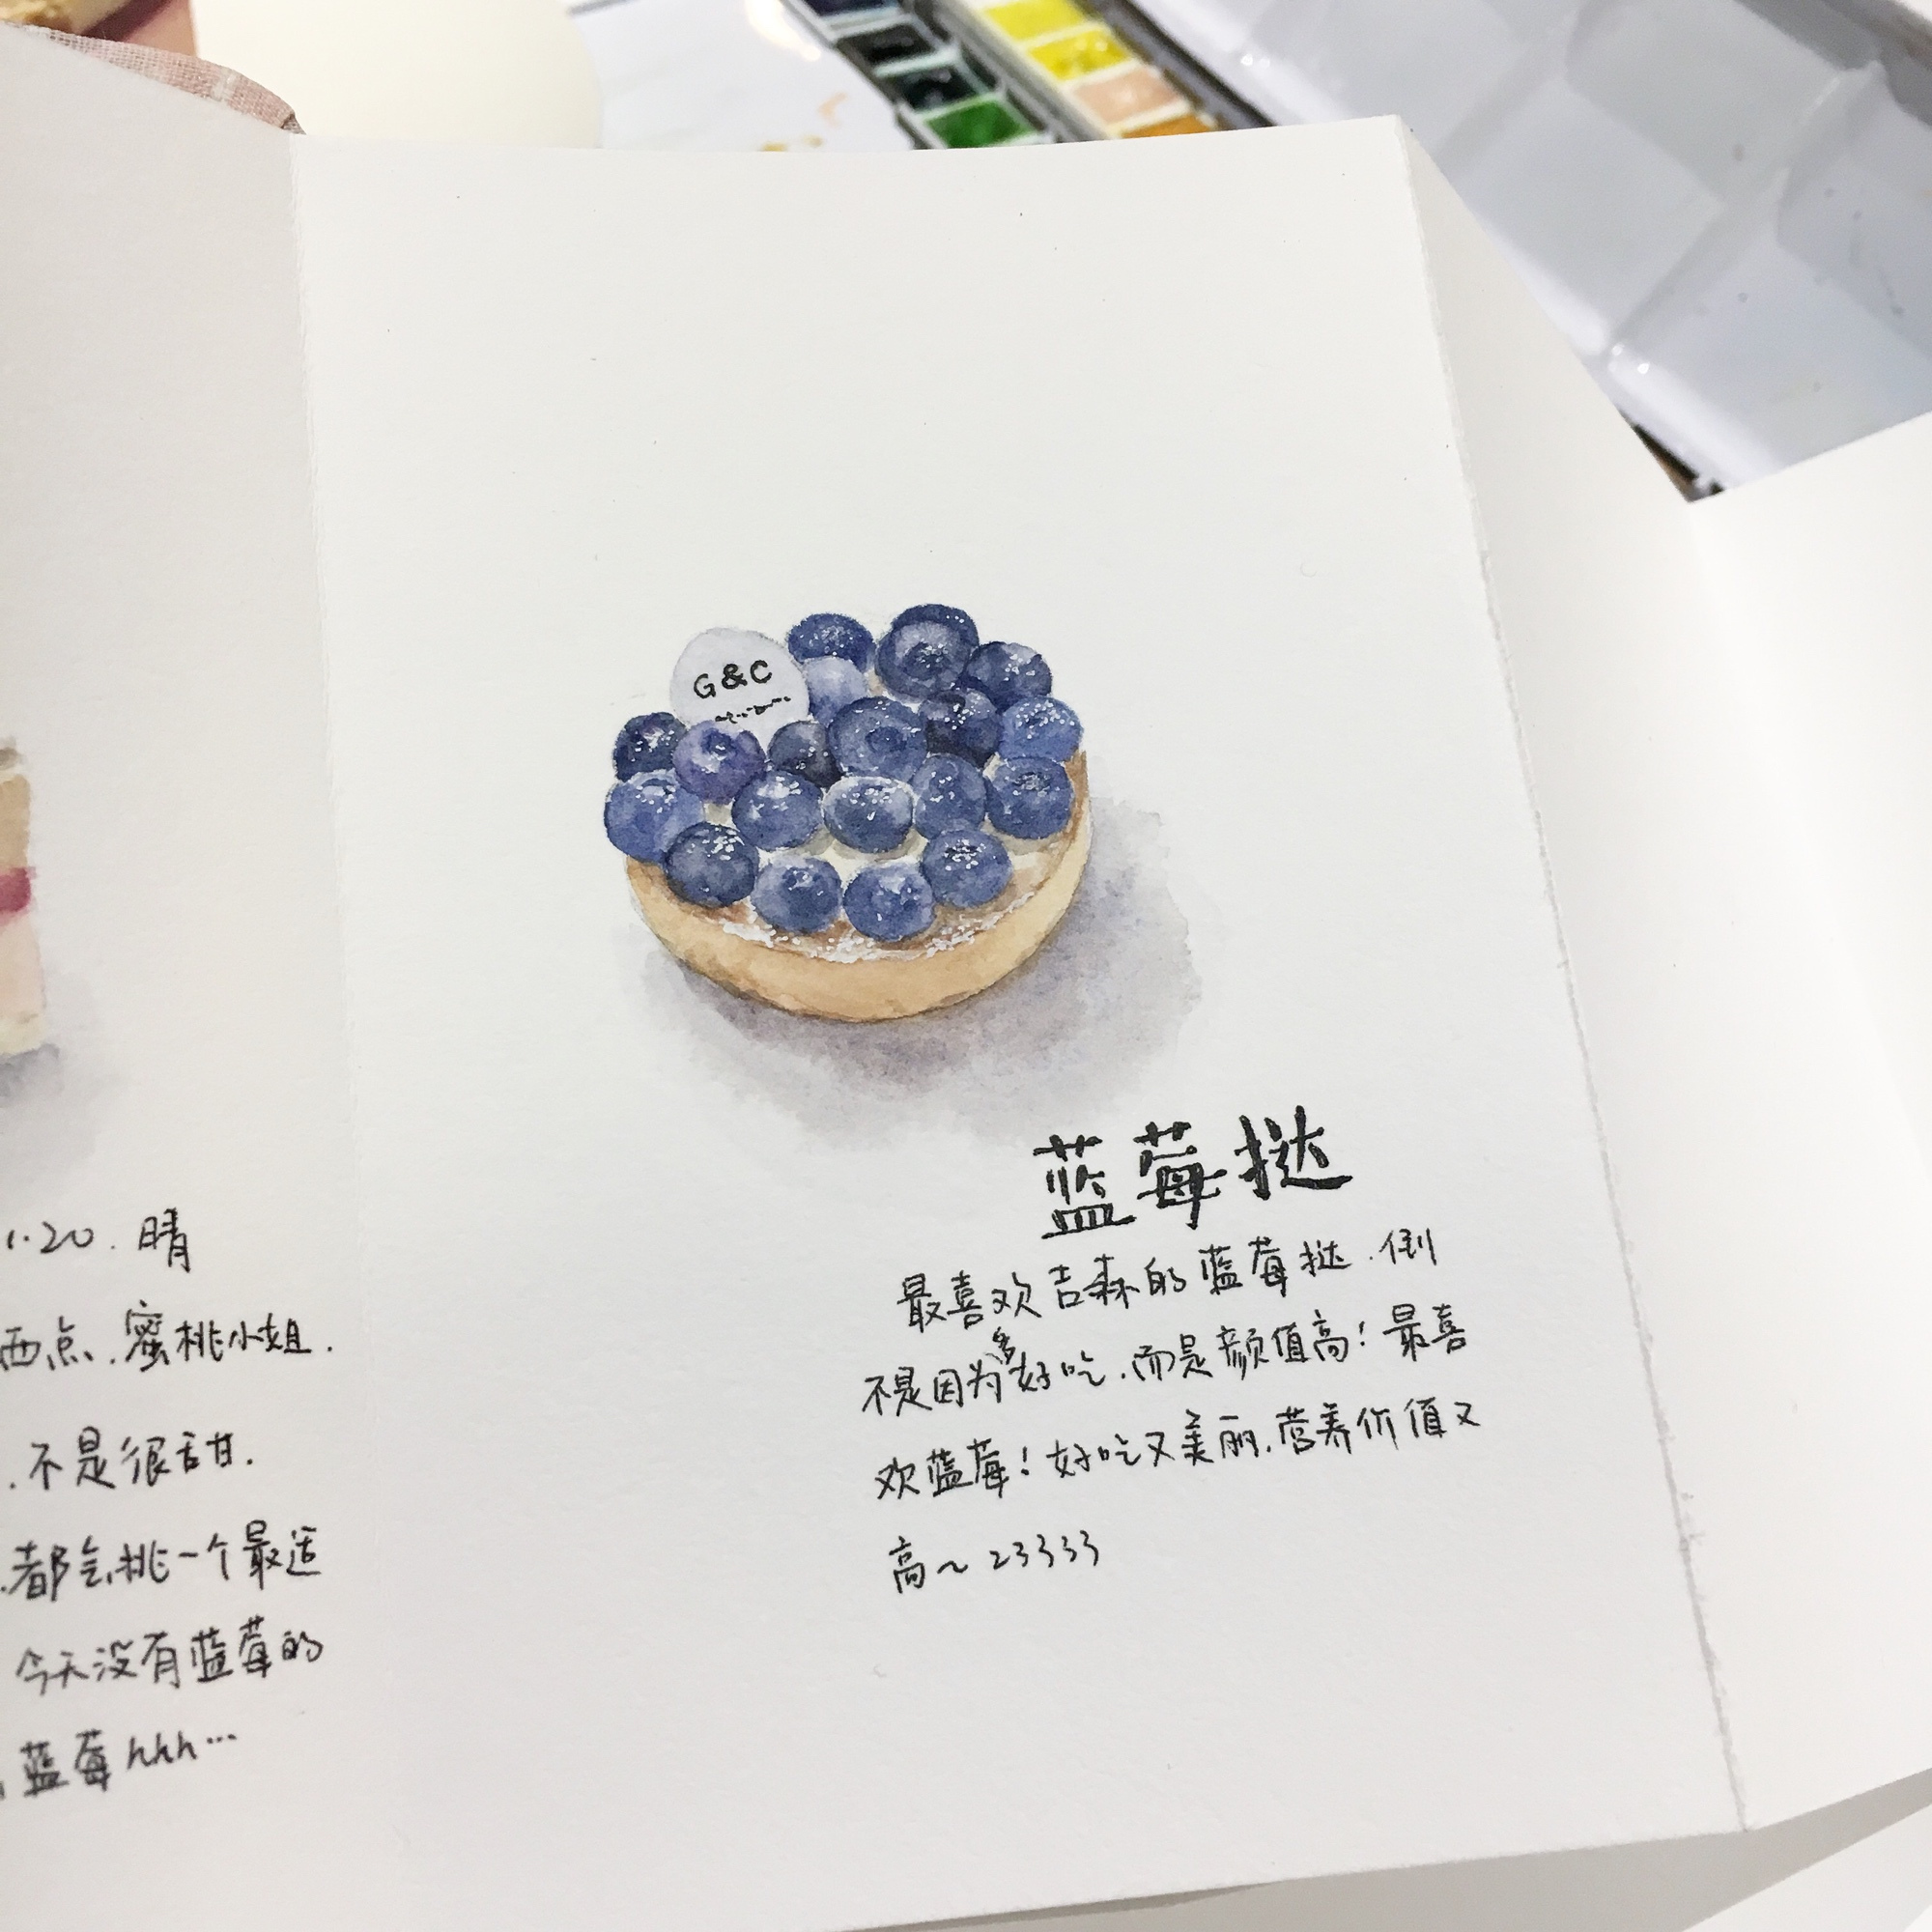 1.20.晴
西点.蜜桃小姐.
.不是很甜.
.都会挑一个最适
今天没有蓝莓的
蓝莓hhh…
G&C
蓝莓挞
最喜欢吉森的蓝莓挞.倒
不是因为多好吃.而是颜值高！最喜
欢蓝莓！好吃又美丽.营养价值又
高~23333